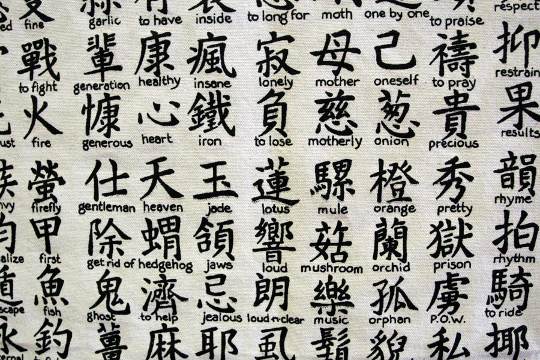 fine garlic to have inside to long for moth one by one to praise respect
戰 輩 康 瘋 寂 母 己 禱 抑
to fight generation healthy insane lonely mother oneself to pray restrain
火 慷 心 鐵 負 慈 葱 貴 果
fire generous heart iron to lose motherly onion precious results
螢 仕 天 玉 蓮 騾 橙 秀 韻
firefly gentleman heaven jade lotus mule orange pretty rhyme
甲 除 蝟 頜 響 菇 蘭 獄 拍
first get rid of hedgehog jaws loud mushroom orchid prison rhythm
魚 鬼 濟 忌 朗 樂 孤 虜 騎
fish ghost to help jealous loud n clear music orphan P.O.W. to ride
釣 麻 耶 虱 私